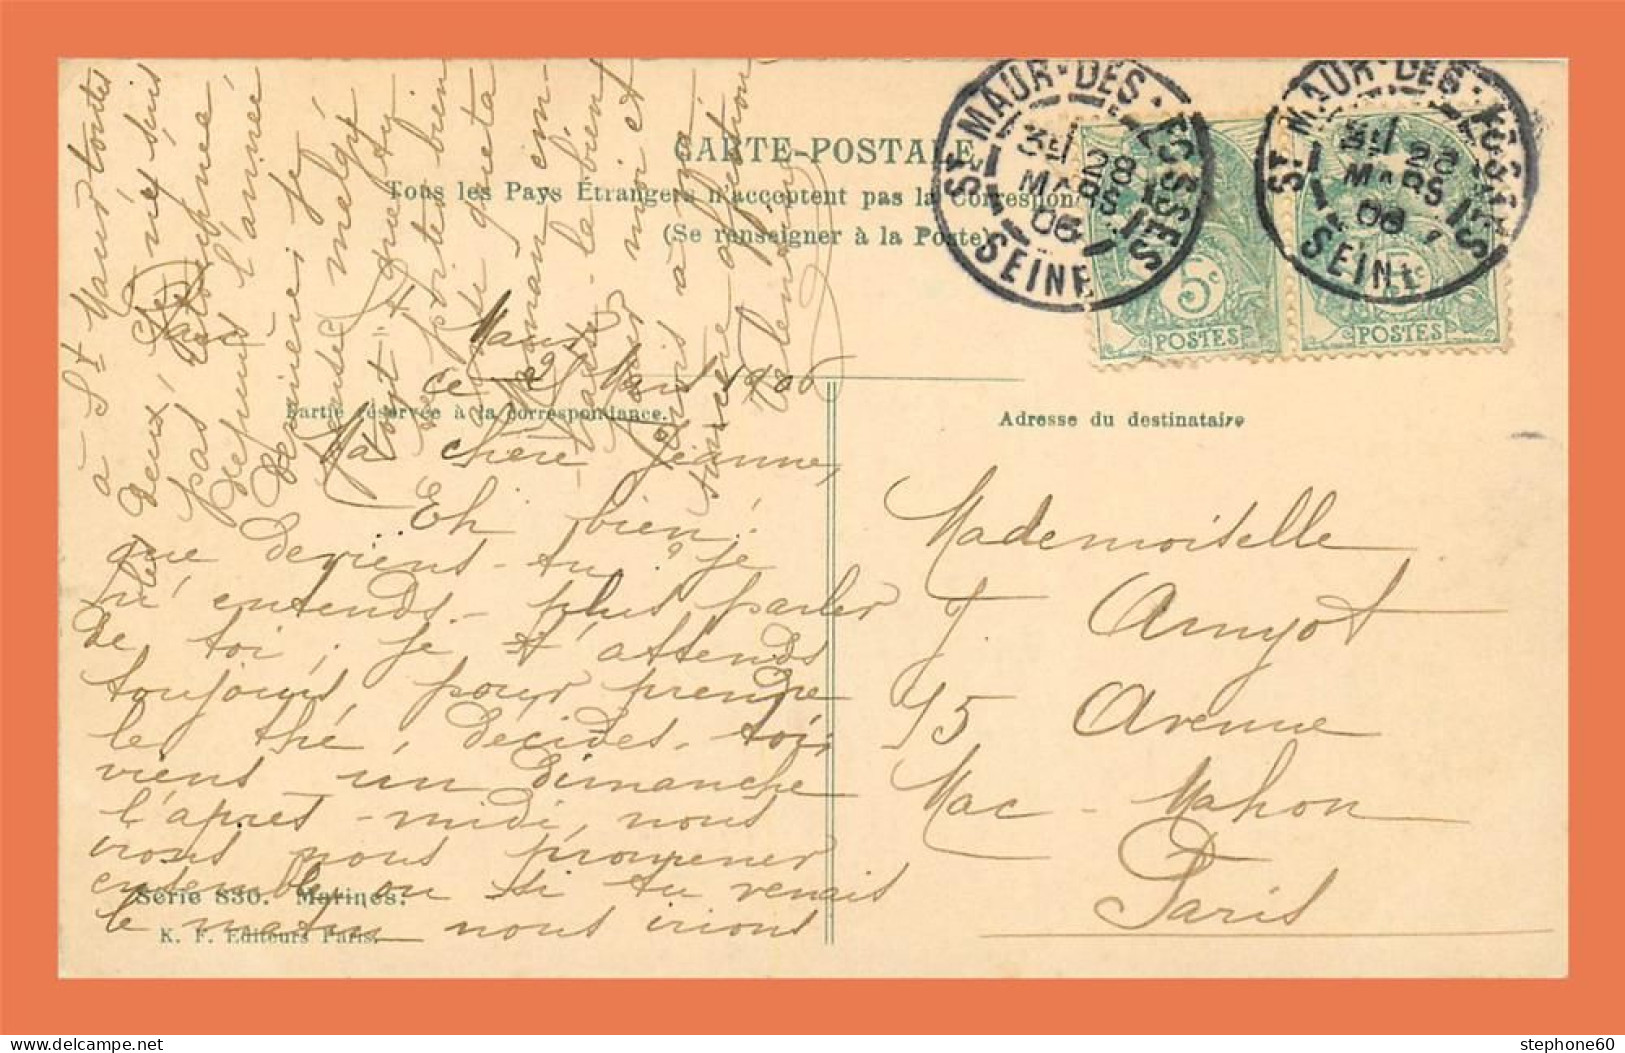 CARTE-POSTALE
Tous les Pays Étrangers n'acceptent pas la Correspon
(Se renseigner à la Poste)
ST MAUR-DES-
28
MARS
06
SEINE
ST MAUR-DES-
28
MARS
06
SEINE
5c
POSTES
5c
POSTES
Parc St Maur
ce 28 Mars 1906
Partie réservée à la correspondance.
Adresse du destinataire
Ma chère Jeanne,
Eh bien!
que deviens-tu? je
n'entends plus parler
de toi; je t'attends
toujours pour prendre
le thé, décides-toi,
viens un dimanche
l'après-midi, nous
irons nous promener
ensemble, ou si tu venais
le matin nous irions
à St Maur toutes
les deux,
pas
depuis l'année
dernière; je
pense malgré
tout que tu
te portes bien
maman
Mademoiselle
J. Amyot
15 Avenue
Mac-Mahon
Paris
Série 830. Marines.
K. F. Editeurs Paris.
stephone60